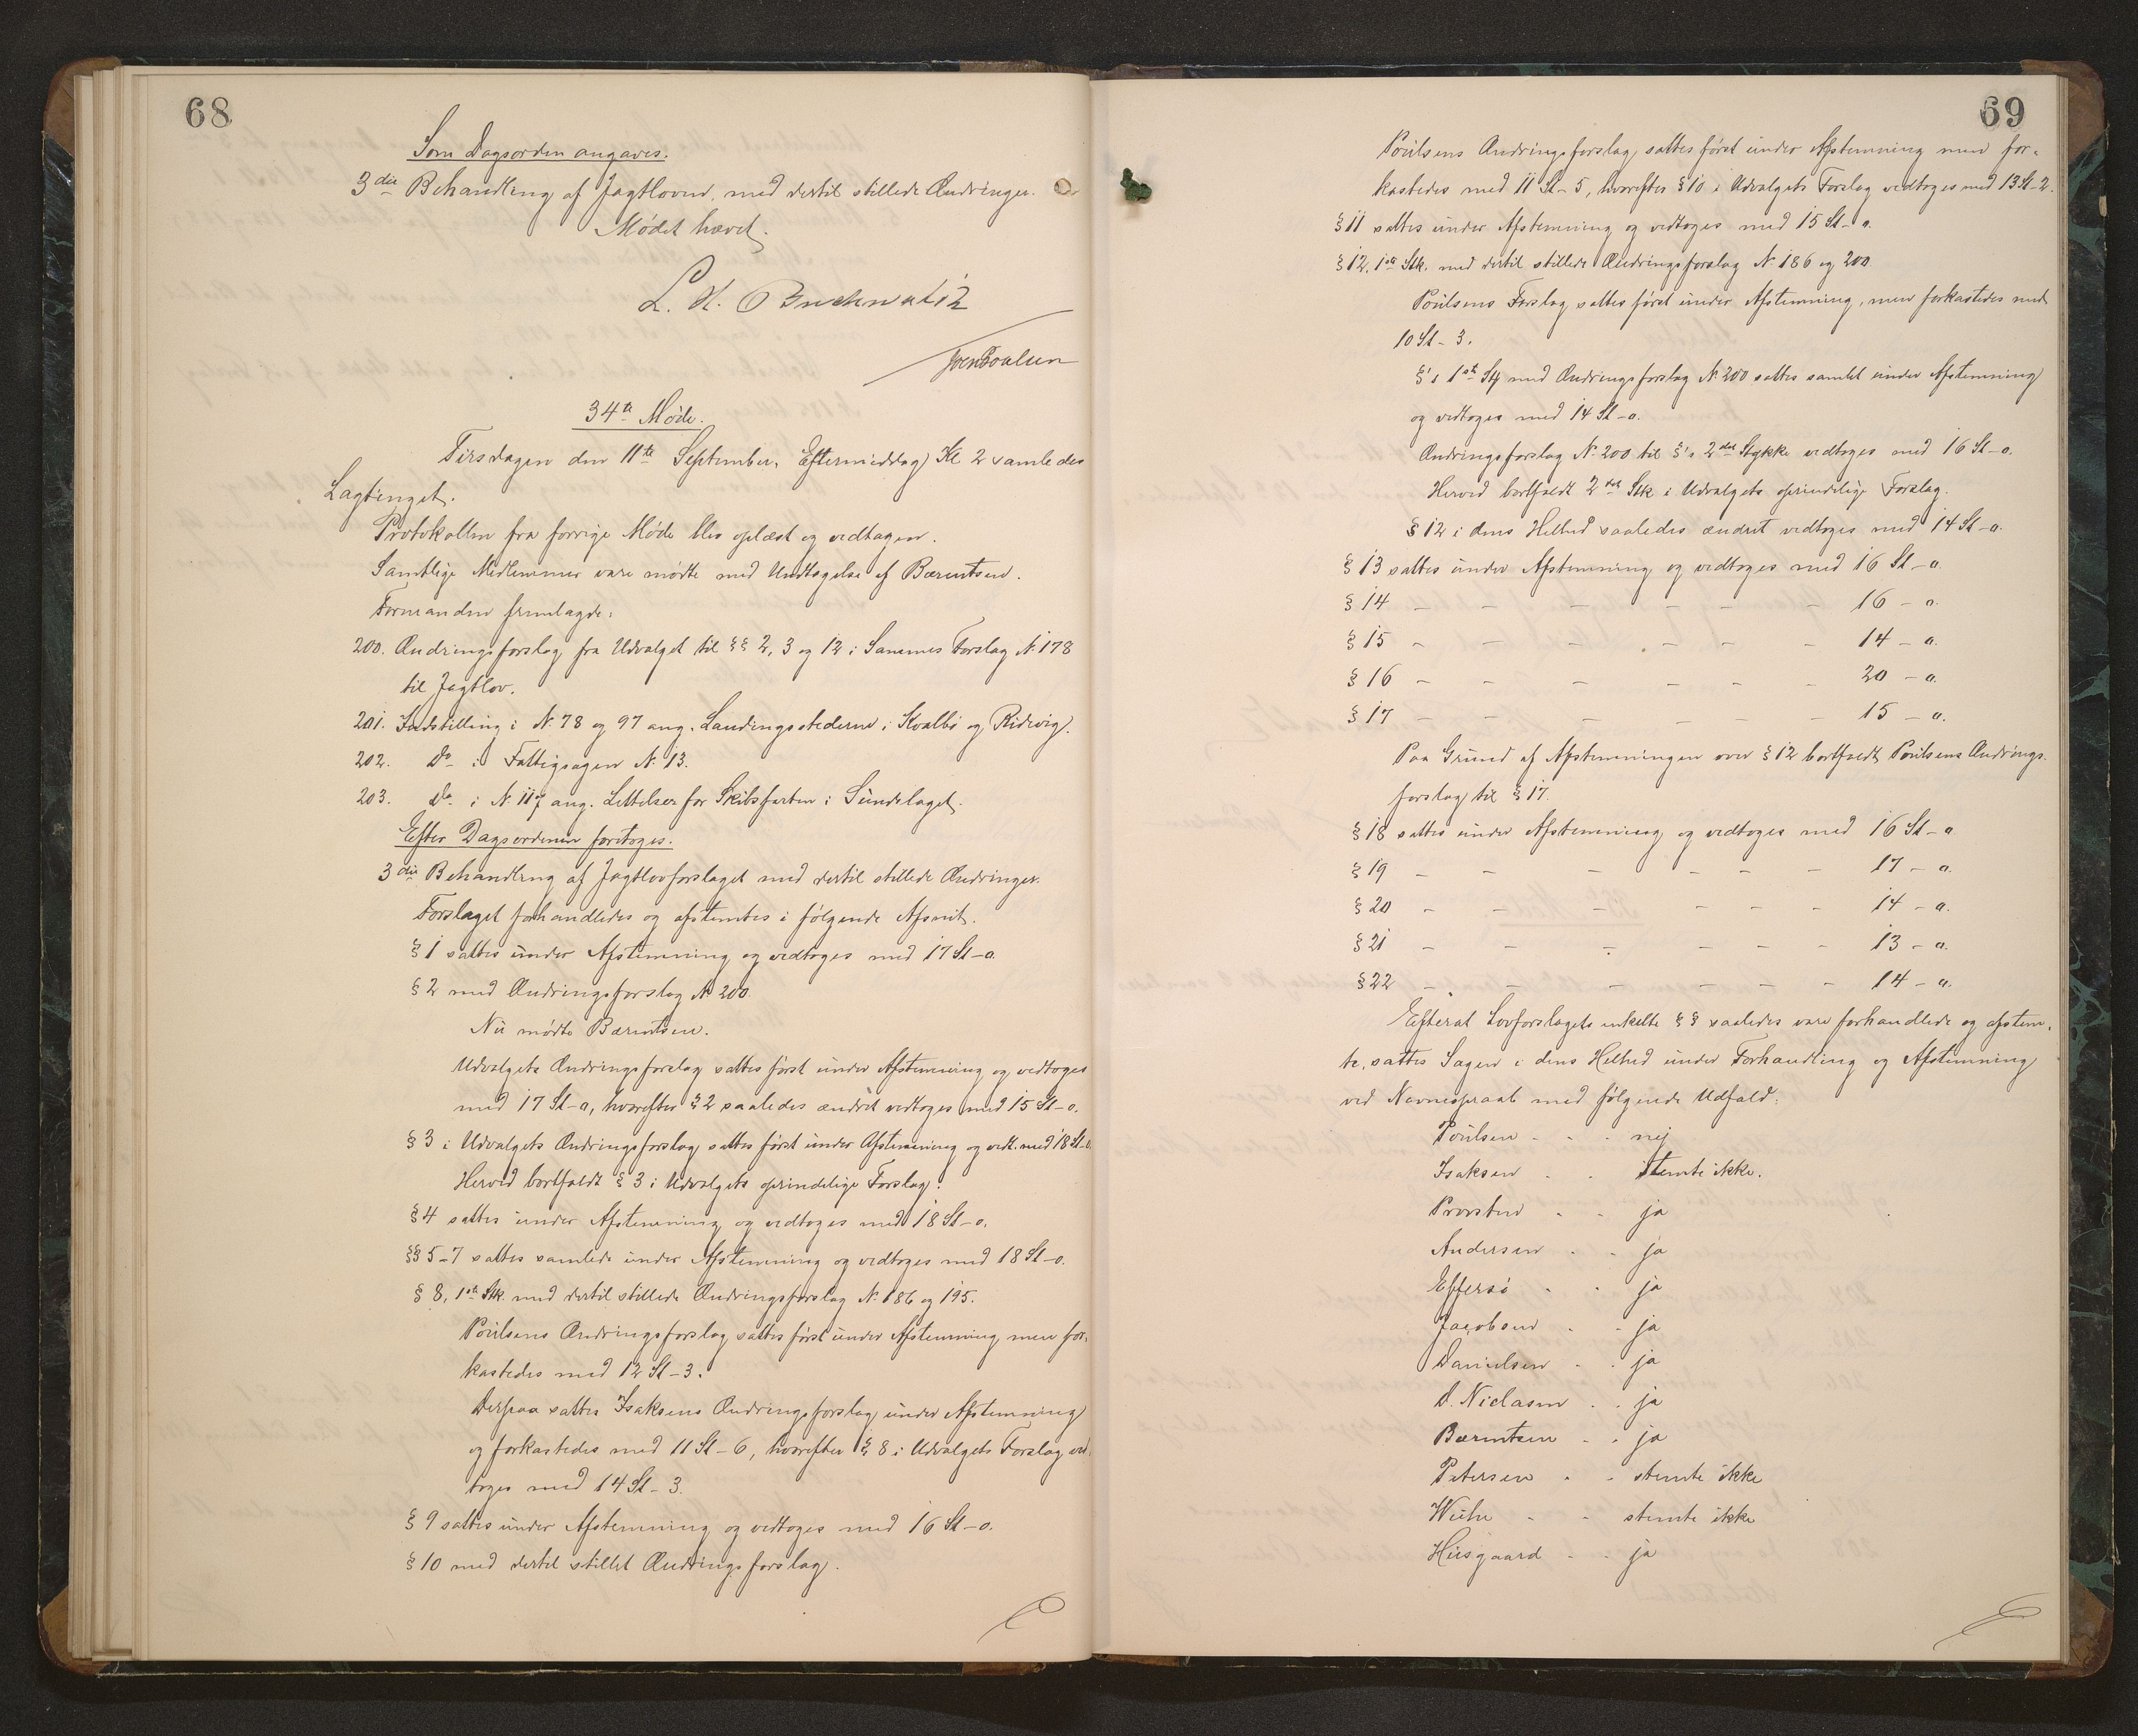 68
Som Dagsorden angaves.
3die Behandling af Jagtloven, med dertil stillede Ændringer.
Mødet hævet.
L. H. Buchwaldt
34te Møde.
Tirsdagen den 11te September, Eftermiddag Kl 2 samledes
Lagtinget.
Protokollen fra forrige Møde blev oplæst og vedtagen.
Samtlige Medlemmer vare mødte med Undtagelse af Bærentsen.
Formanden fremlagde:
200. Ændringsforslag fra Udvalget til §§ 2, 3 og 12 i Sammes Forslag N. 178
til Jagtlov.
201. Indstilling i N. 78 og 97 ang. Landingsstederne i Kvalbø og Ridevig.
202. Do i Fattigsagen N. 13.
203. Do. i N. 117 ang. Lettelser for Skibsfarten i Sundelaget.
Efter Dagsordenen foretoges.
3die Behandling af Jagtlovforslaget med dertil stillede Ændringer.
Forslaget forhandledes og afstemtes i følgende Afsnit.
§ 1 sattes under Afstemning og vedtoges med 17 St – o.
§ 2 med Ændringsforslag N. 200.
Nu mødte Bærentsen.
Udvalgets Ændringsforslag sattes først under Afstemning og vedtoges
med 17 St – o, hvorefter § 2 saaledes ændret vedtoges med 15 St – o.
§ 3 i Udvalgets Ændringsforslag sattes først under Afstemning og vedt. med 18 St – o.
Herved bortfaldt § 3 i Udvalgets oprindelige Forslag.
§ 4 sattes under Afstemning og vedtoges med 18 St – o.
§§ 5–7 sattes samlede under Afstemning og vedtoges med 18 St – o.
§ 8, 1ste Stk. med dertil stillede Ændringsforslag N. 186 og 195.
Poulsens Ændringsforslag sattes først under Afstemning men for-
kastedes med 12 St – 3.
Derpaa sattes Isaksens Ændringsforslag under Afstemning
og forkastedes med 11 St – 6, hvorefter § 8 i Udvalgets Forslag ved-
toges med 14 St – 3.
§ 9 sattes under Afstemning og vedtoges med 16 St – o.
§ 10 med dertil stillet Ændringsforslag.
69
Poulsens Ændringsforslag sattes først under Afstemning men for-
kastedes med 11 St – 5, hvorefter § 10 i Udvalgets Forslag vedtoges med 13 St – 2.
§ 11 sattes under Afstemning og vedtoges med 15 St – o.
§ 12, 1ste Stk. med dertil stillede Ændringsforslag N. 186 og 200.
Poulsens Forslag sattes først under Afstemning, men forkastedes med
10 St – 3.
§'s 1ste Stk med Ændringsforslag N. 200 sattes samlet under Afstemning
og vedtoges med 14 St – o.
Ændringsforslag N. 200 til §'s 2det Stykke vedtoges med 16 St – o.
Herved bortfaldt 2det Stk i Udvalgets oprindelige Forslag.
§ 12 i dens Helhed saaledes ændret vedtoges med 14 St – o.
§ 13 sattes under Afstemning og vedtoges med 16 St – o.
§ 14 – – – – – – 16 – o.
§ 15 – – – – – – 14 – o.
§ 16 – – – – – – 20 – o.
§ 17 – – – – – – 15 – o.
Paa Grund af Afstemningen over § 12 bortfaldt Poulsens Ændrings-
forslag til § 17.
§ 18 sattes under Afstemning og vedtoges med 16 St – o
§ 19 – – – – – – 17 – o.
§ 20 – – – – – – 14 – o.
§ 21 – – – – – – 13 – o.
§ 22 – – – – – – 14 – o.
Efterat Lovforslagets enkelte §§ saaledes vare forhandlede og afstem-
te, sattes Sagen i dens Helhed under Forhandling og Afstemning
ved Navneopraab med følgende Udfald.
Poulsen - - - nej
Isaksen - - stemte ikke.
Provsten - - ja
Andersen - - ja
Effersø - - ja
Jacobsen - - ja
Danielsen - - ja
D. Niclasen - - ja
Bærentsen - - ja
Petersen - - stemte ikke
Weihe - - stemte ikke
Husgaard - - ja